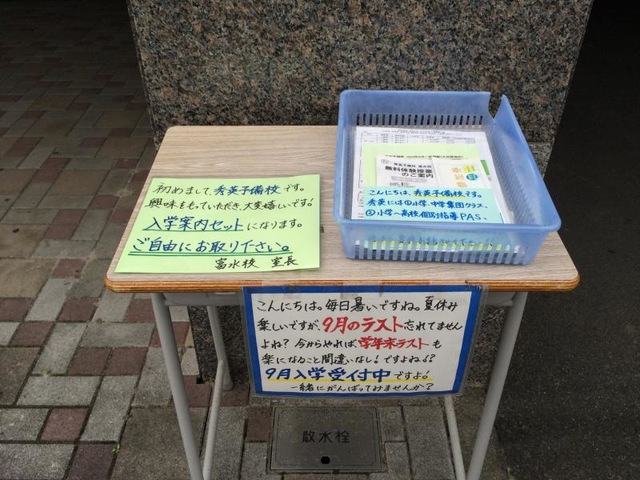 初めまして秀英予備校です。
興味をもっていただき、大変嬉しいです!
入学案内セットになります。
ご自由にお取り下さい。
富水校 室長
無料体験授業
のご案内
こんにちは、秀英予備校です。
秀英には①小学、中学集団クラス、
②小学〜高校個別指導PAS、
こんにちは。毎日暑いですね。夏休み
楽しいですが、9月のテスト忘れてません
よね?今からやれば、学年末テストも
楽になること間違いなし!ですよね!?
9月入学受付中ですよ!
一緒にがんばってみませんか?
散水栓